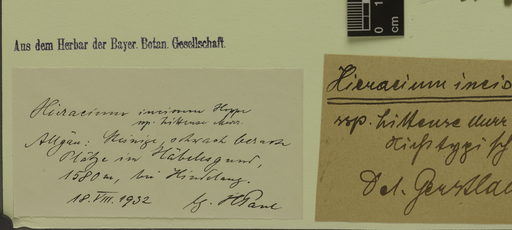 Aus dem Herbar der Bayer. Botan. Gesellschaft.
Hieracium incisum Hoppe
ssp. hittense Murr.
Allgäu: Steinige, schwach
Plätze in
1580 m, bei Hindelang.
18. VIII. 1932
Hieracium incis
ssp. hittense Murr
Det. Gerstlau
0 1
cm